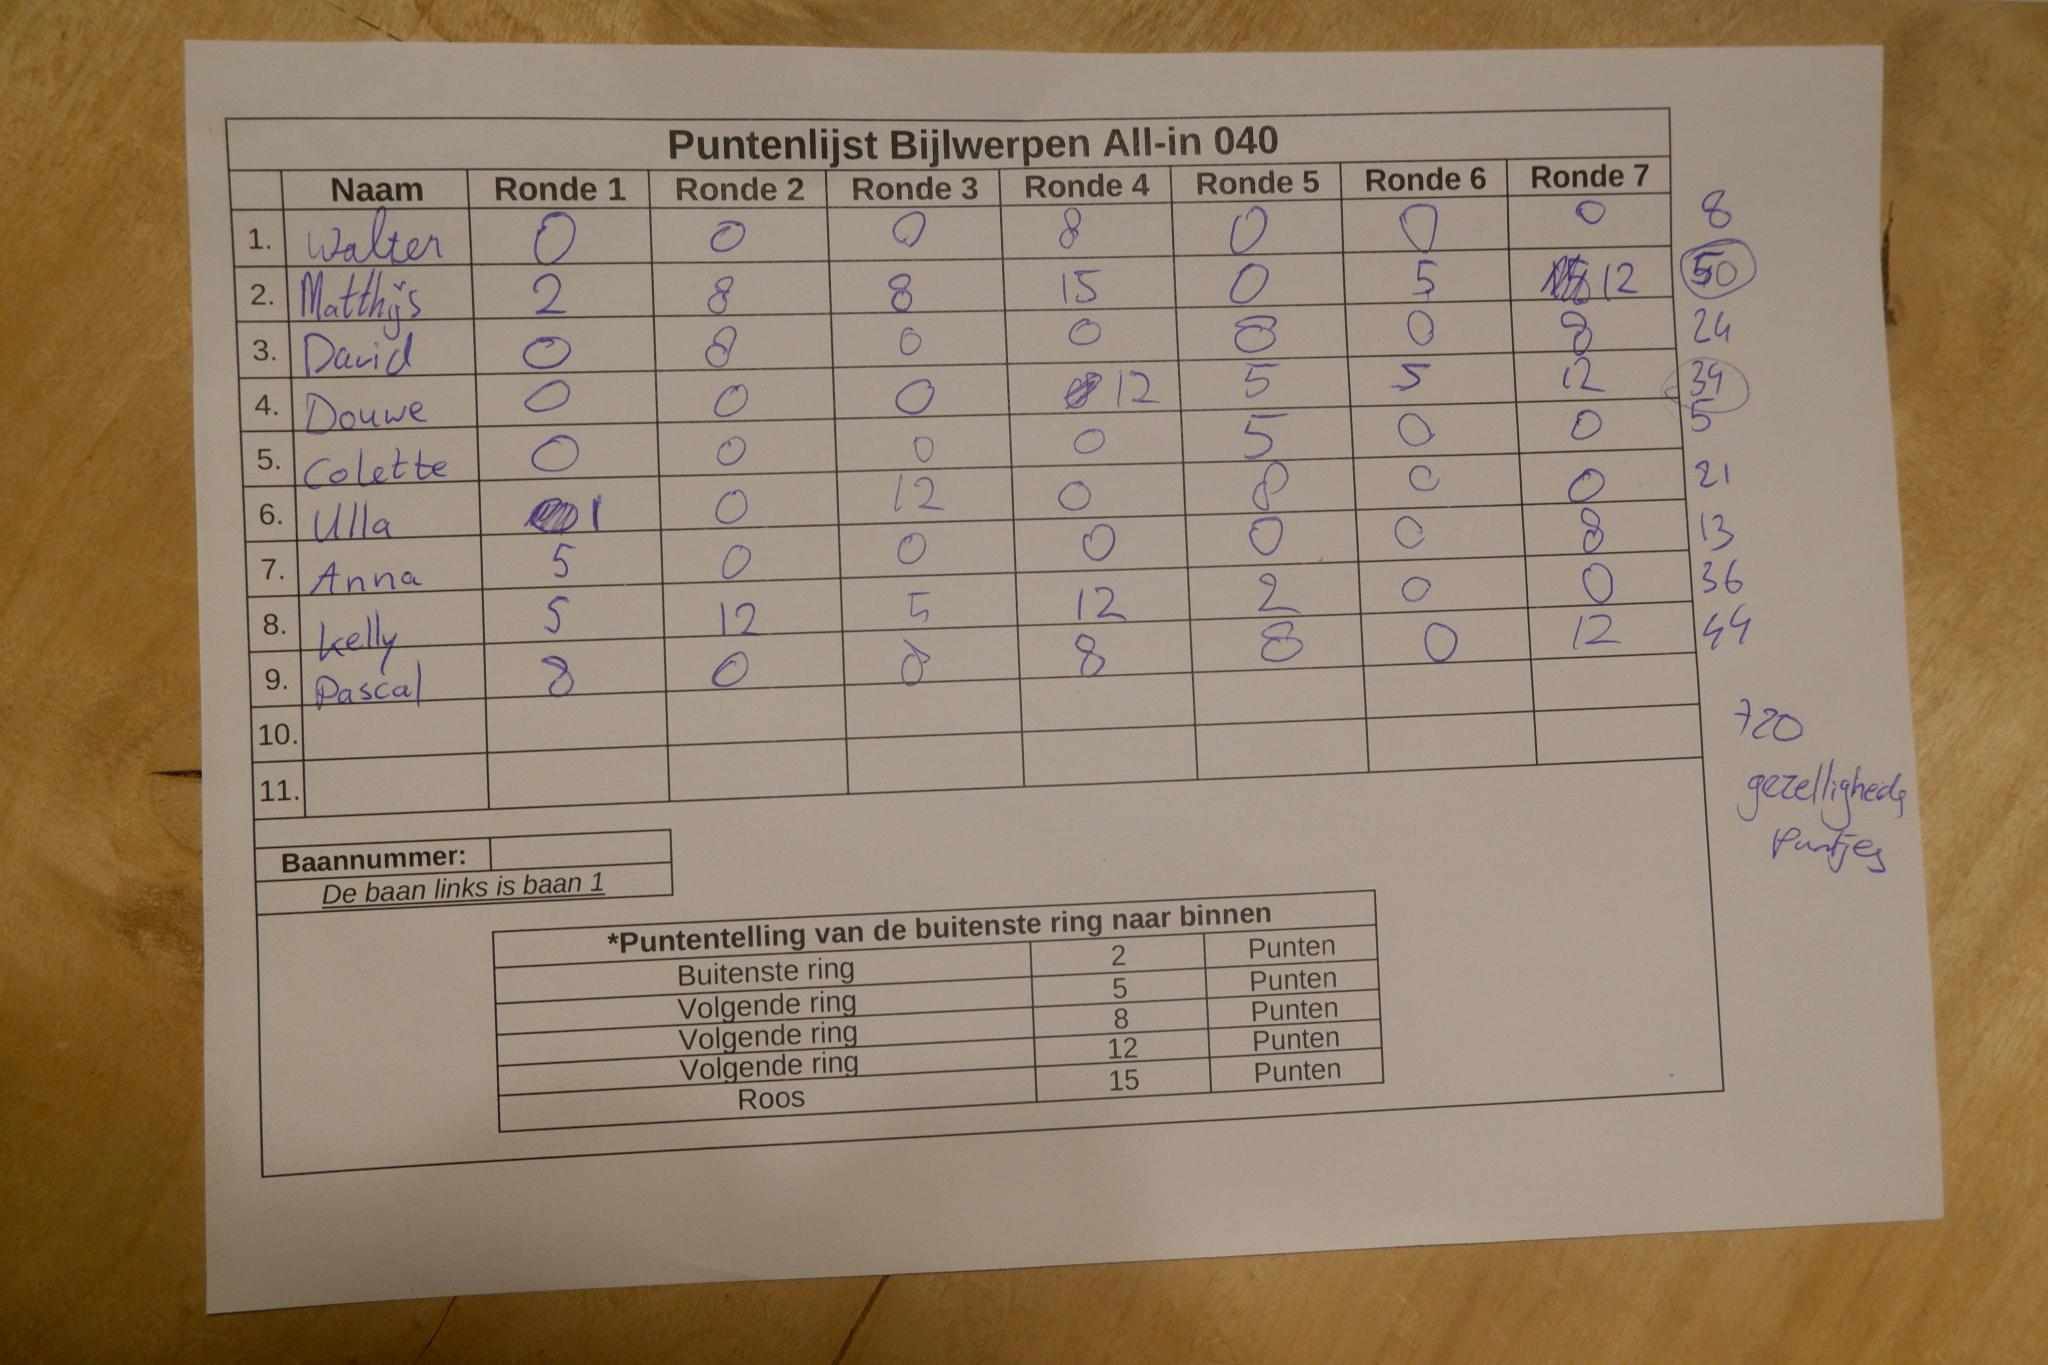 Puntenlijst Bijlwerpen All-in 040
Naam Ronde 1 Ronde 2 Ronde 3 Ronde 4 Ronde 5 Ronde 6 Ronde 7
1. Walter 0 0 0 8 0 0 0 8
2. Matthijs 2 8 8 15 0 5 12 50
3. David 0 8 0 0 8 0 8 24
4. Douwe 0 0 0 12 5 5 12 34
5. Colette 0 0 0 0 5 0 0 5
6. Ulla 1 0 12 0 8 0 0 21
7. Anna 5 0 0 0 0 0 8 13
8. Kelly 5 12 5 12 2 0 0 36
9. Pascal 8 0 8 8 8 0 12 44
10.
11.
720
gezelligheids
puntjes
Baannummer:
De baan links is baan 1
*Puntentelling van de buitenste ring naar binnen
Buitenste ring 2 Punten
Volgende ring 5 Punten
Volgende ring 8 Punten
Volgende ring 12 Punten
Roos 15 Punten